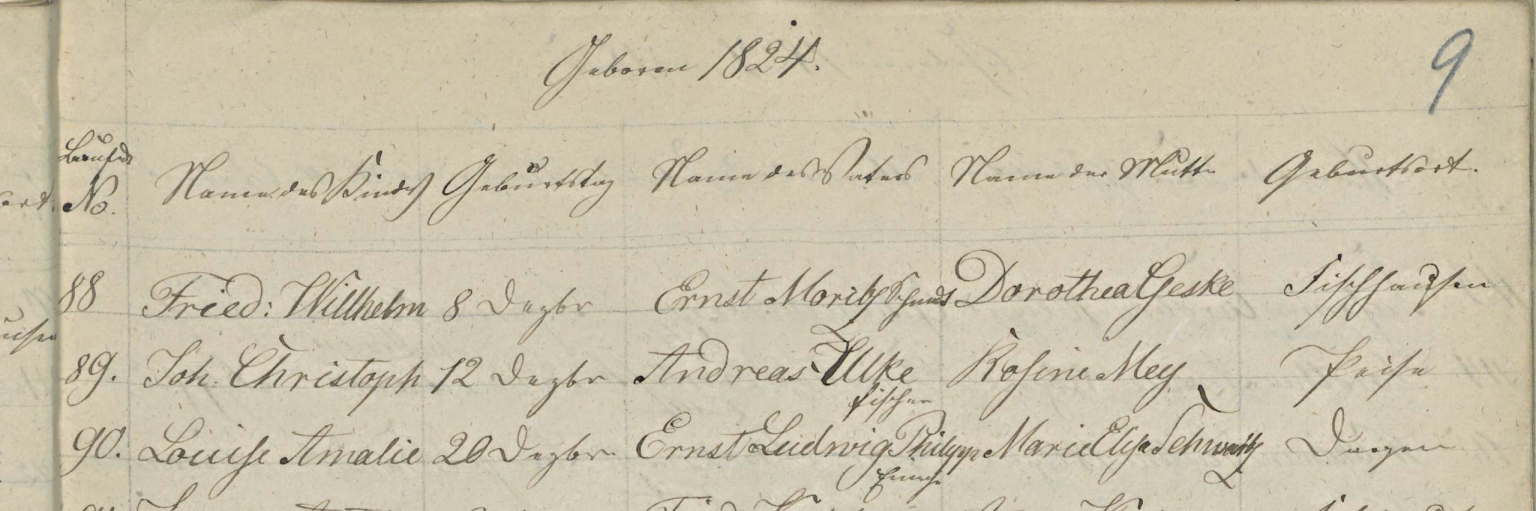 Geboren 1824.
9
Laufde
No.
Name des Kindes Geburtstag Name des Vaters Name der Mutter Geburtsort.
88 Fried: Willhelm 8 Dezbr Ernst Moritz Dorothea Geske Fischhausen
89. Joh. Christoph 12 Dezbr Andreas Ulke Rosine Mey Peise
Fischer
90. Louise Amalie 20 Dezbr Ernst Ludwig Philipp Marie Elise